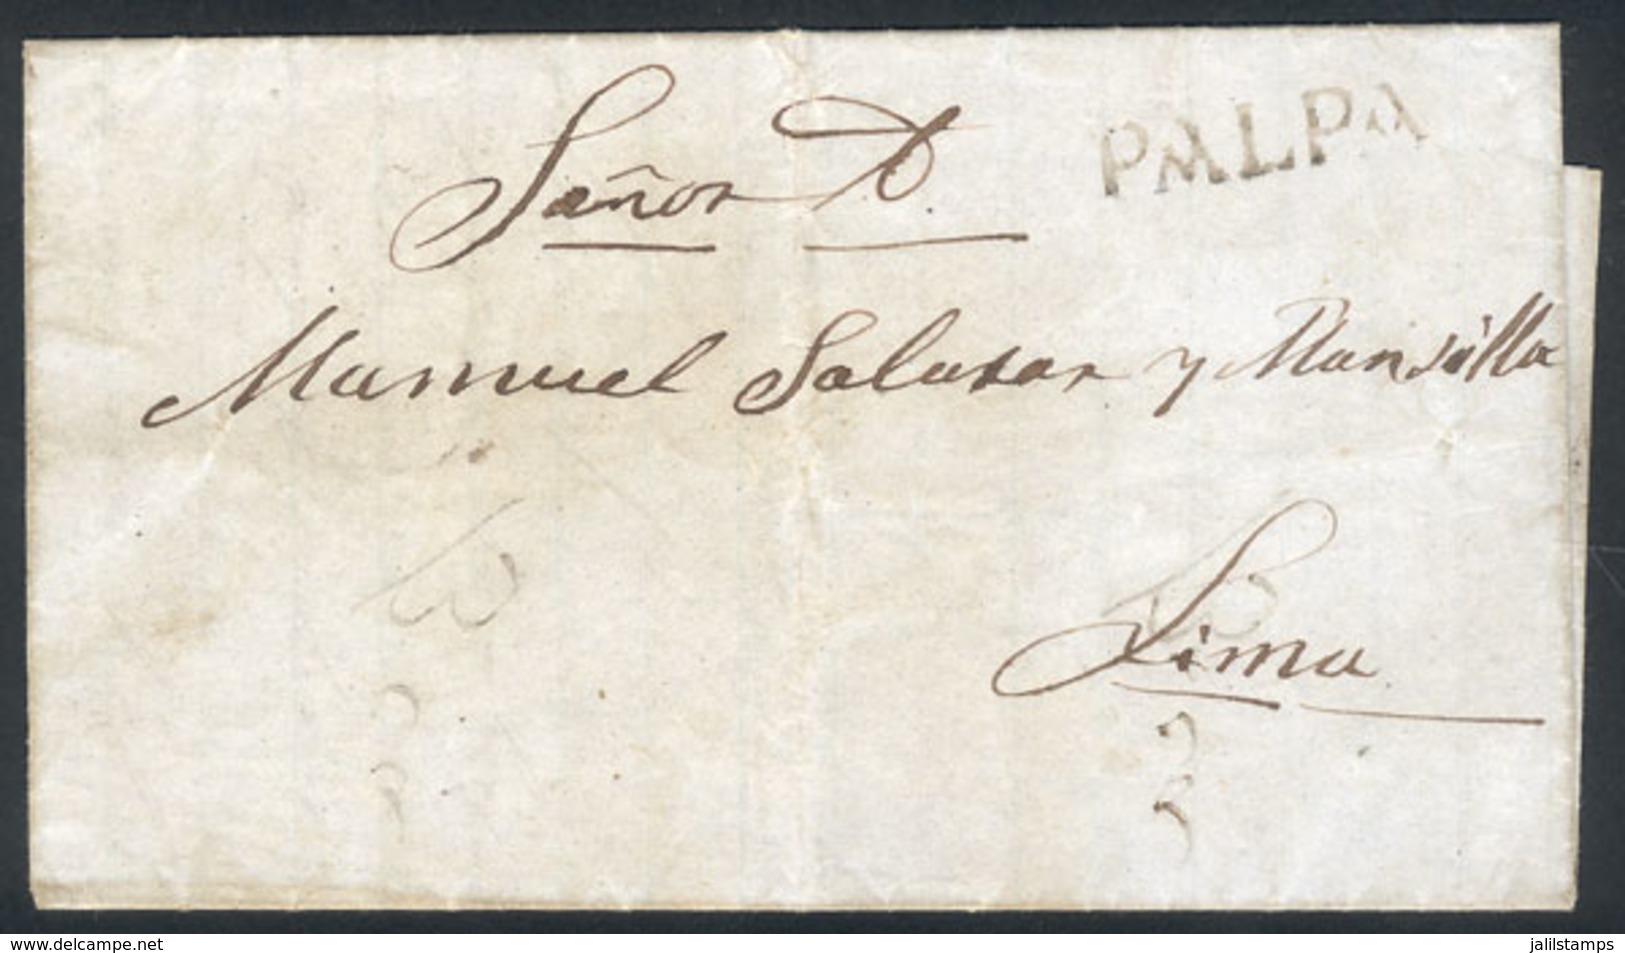 Señor D.
PALPA
Manuel Salasar y Mansilla
Lima
www.delcampe.net
jalilstamps